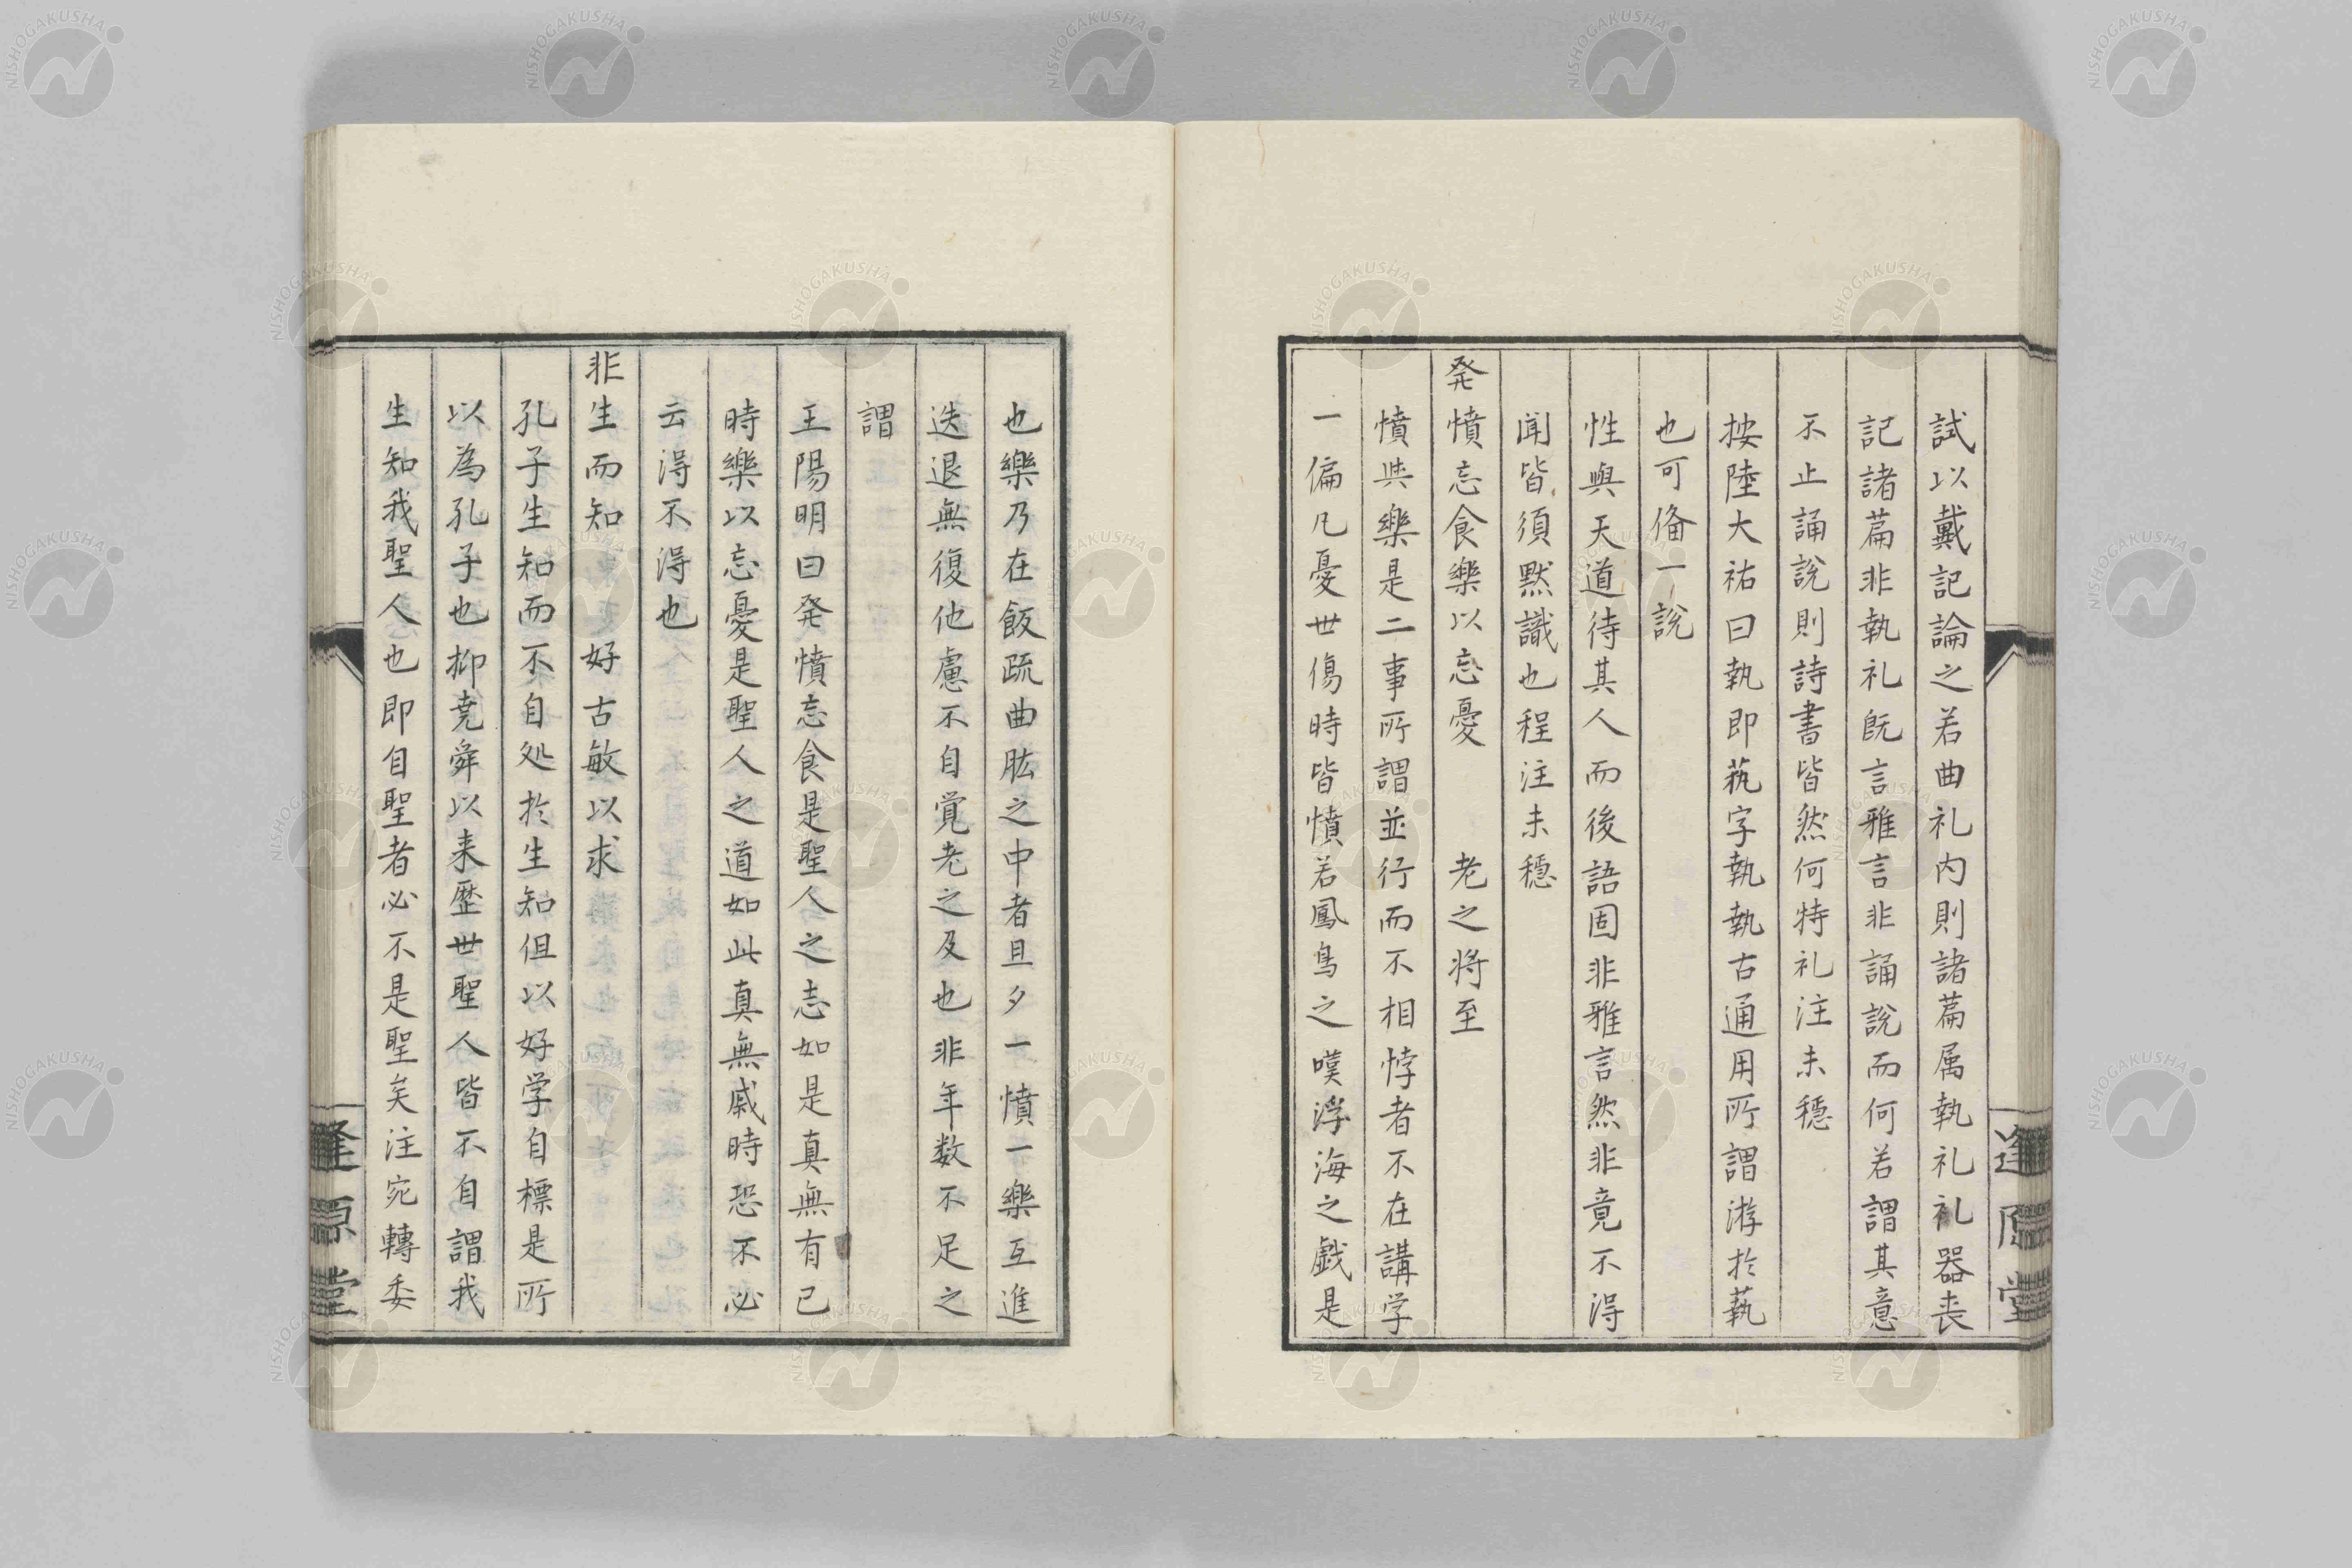 試以戴記論之若曲礼内則諸篇属執礼礼器喪
記諸篇非執礼既言雅言非誦説而何若謂其意
不止誦説則詩書皆然何特礼注未穩
按陸大祐曰執即蓺字執執古通用所謂游於藝
也可俻一説
性與天道待其人而後語固非雅言然非竟不得
闻皆須默識也程注未穩
発憤忘食樂以忘憂　老之将至
憤与樂是二事所謂並行而不相悖者不在講学
一偏凡憂世傷時皆憤若鳳鳥之嘆浮海之戯是
逢原堂
也樂乃在飯疏曲肱之中者旦夕一憤一樂互進
迭退無復他慮不自覚老之及也非年数不足之
謂
王陽明曰発憤忘食是聖人之志如是真無有已
時樂以忘憂是聖人之道如此真無戚時恐不必
云得不得也
非生而知　好古敏以求
孔子生知而不自処於生知但以好学自標是所
以為孔子也抑尭舜以来歴世聖人皆不自謂我
生知我聖人也即自聖者必不是聖矣注宛轉委
逢原堂
NISHOGAKUSHA